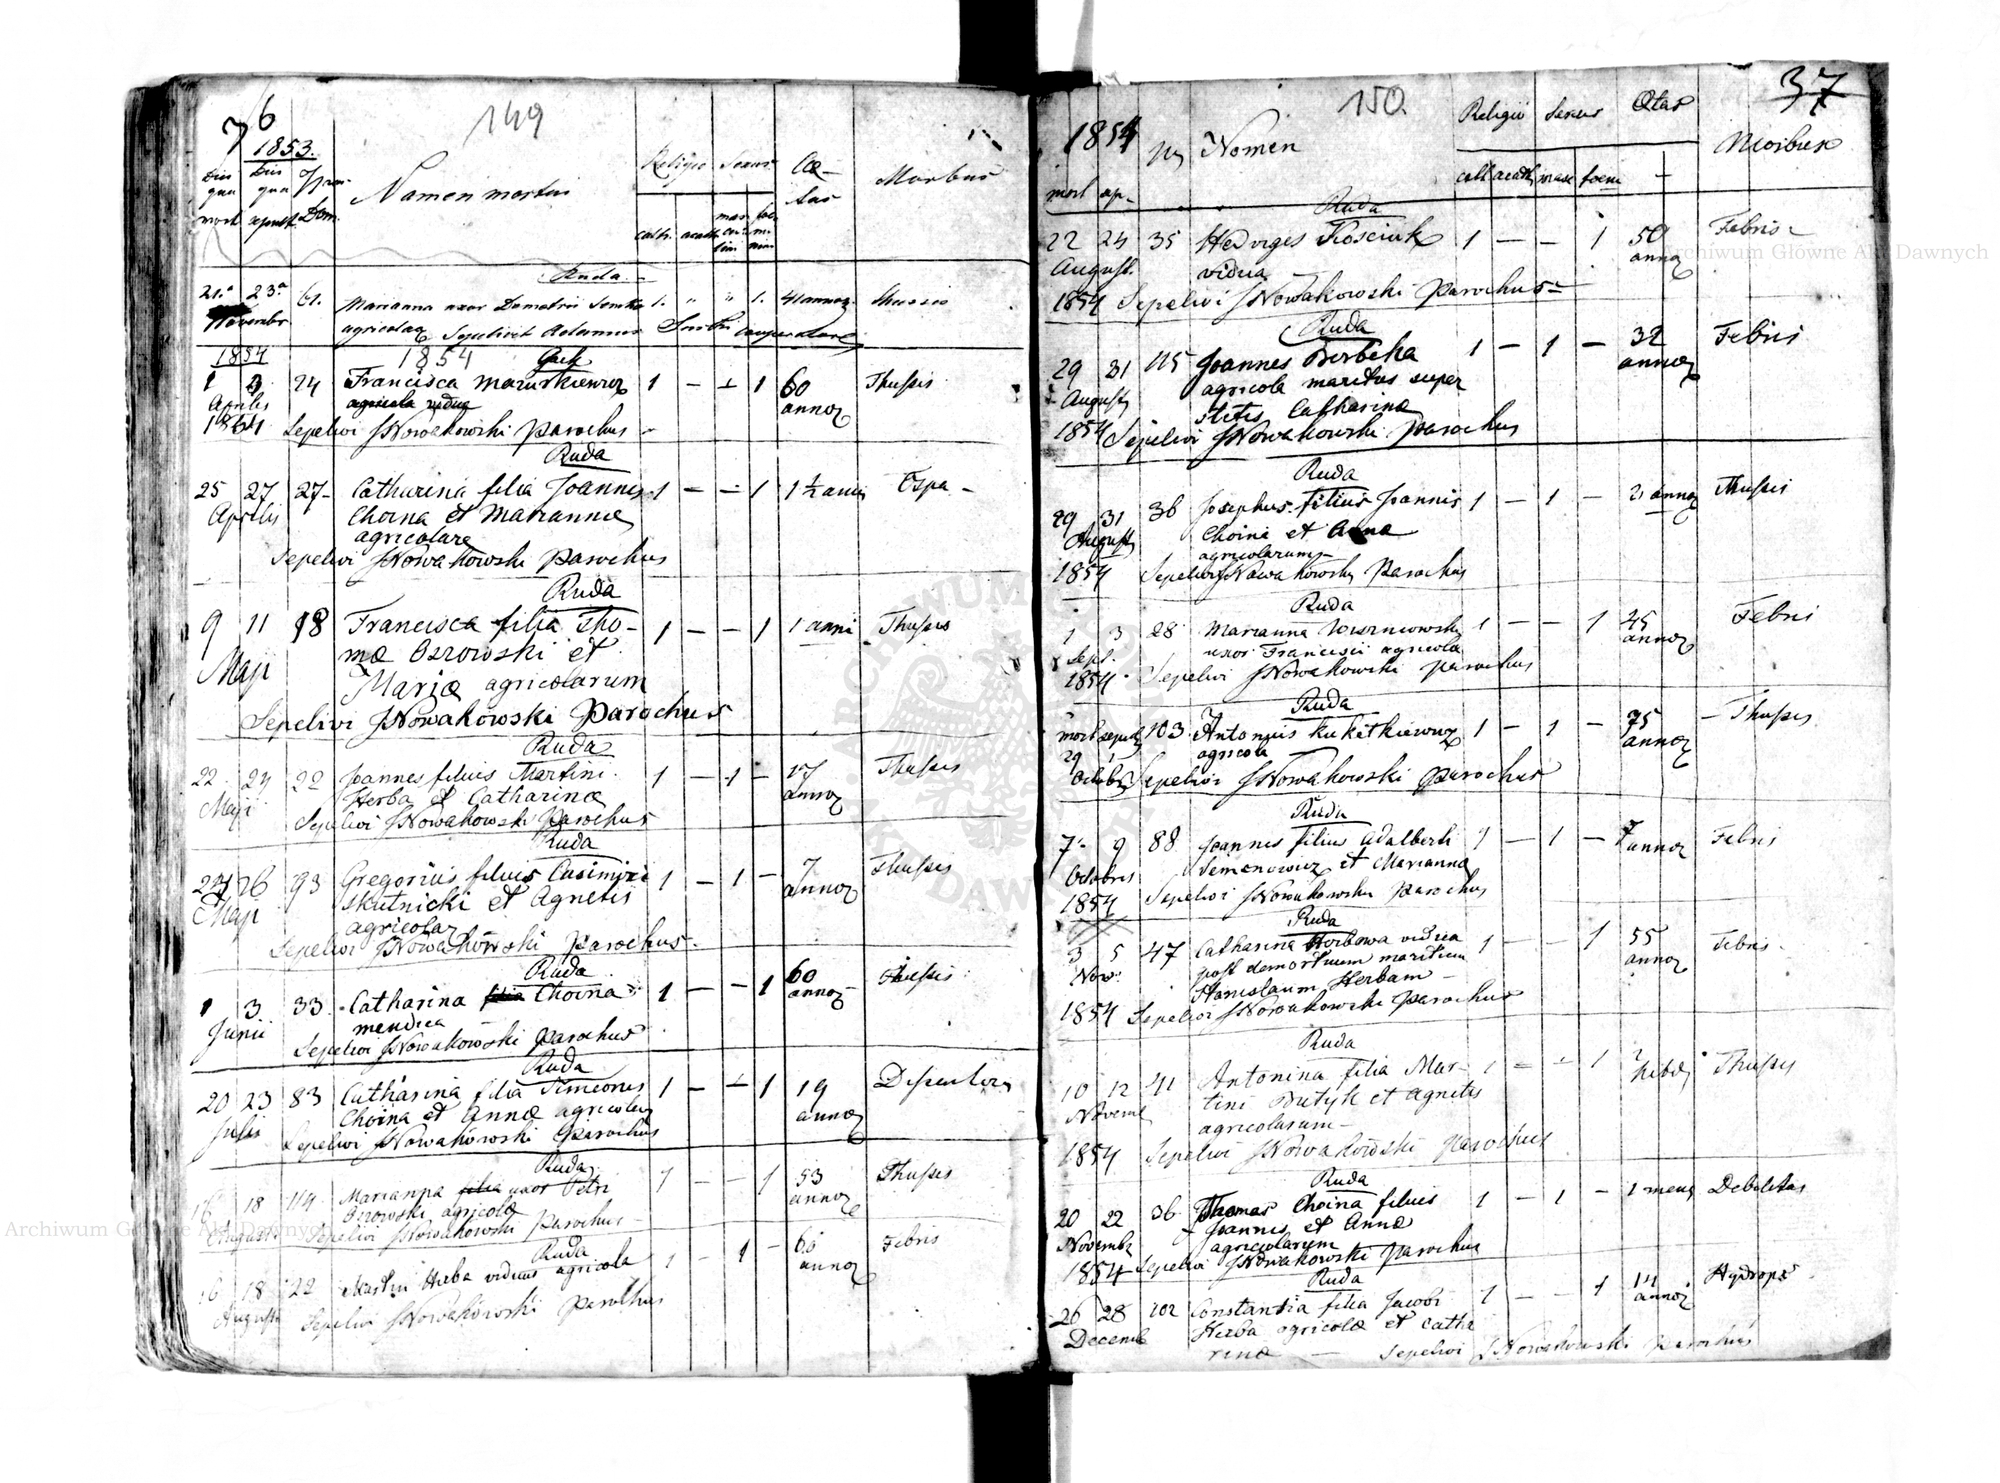 76
149
1853.
Dies quo mort
Dies quo sepult
Dom.
Nomen mortui
Religio
Sexus
Aetas
Morbus
cath. acath.
Ruda
21. 23. 61. Marianna uxor Demetrii 1. " " 1. 41 annor.
Novembr agricolae Sepelivit cooperator
1854
1854
1 3 24 Francisca Mazurkiewicz 1 – – 1 60 Thussis
Aprilis agricola vidua annor
1854 Sepelivi JNowakowski Parochus
Ruda
25 27 27 Catharina filia Joannis 1 – – 1 1½ anni
Aprilis Choina et Mariannae
agricolare
Sepelivi JNowakowski Parochus
Ruda
9 11 18 Francisca filia Tho- 1 – – 1 1 anni Thussis
Maji mae Ozrowski et
Mariae agricolarum
Sepelivi JNowakowski Parochus
Ruda
22 24 22 Joannes filius Martini 1 – 1 – 17 Thussis
Maji Herba et Catharinae annor
Sepelivi JNowakowski Parochus
Ruda
24 26 93 Gregorius filius Casimiri 1 – 1 – 7 Thussis
Maji Skutnicki et Agnetis annor
agricolar
Sepelivi JNowakowski Parochus
Ruda
1 3 33 Catharina filia Choina 1 – – 1 60 Thussis
Junii mendica annor
Sepelivi JNowakowski Parochus
Ruda
20 23 83 Catharina filia Simeonis 1 – – 1 19
Julii Choina et Annae agricolar annor
Sepelivi JNowakowski Parochus
Ruda
16 18 Marianna filia uxor Petri 1 – – 1 53 Thussis
August Ozrowski agricolae annor
Sepelivi JNowakowski Parochus
Ruda
16 18 22 Martin Herba viduus agricola 1 – 1 – 60 Febris
August annor
Sepelivi JNowakowski Parochus
150
37
1854
Nomen
Religio Sexus Aetas
Morbus
mort sep.
cath acath masc foem
Ruda
22 24 35 Hedviges Kosciuk 1 – – 1 50 Febris
August. vidua annor
1854 Sepelivi JNowakowski Parochus
Ruda
29 31 115 Joannes Berbeka 1 – 1 – 32 Febris
August agricola maritus super annor
stitis Catharina
1854 Sepelivi JNowakowski Parochus
Ruda
29 31 36 Josephus filius Joannis 1 – 1 – 2 annor Thussis
August Choina et Anna
agricolarum
1854 Sepelivi JNowakowski Parochus
Ruda
1 3 28 Marianna 1 – – 1 45 Febris
Sept. uxor Francisci agricola annor
1854 Sepelivi JNowakowski Parochus
Ruda
mort sepult 103 Antonius 1 – 1 – 75 Thussis
29 1 agricola annor
Octobr Sepelivi JNowakowski Parochus
Ruda
7 9 88 Joannes filius Adalberti 1 – 1 – 7 annor Febris
Octobris Semenowicz et Marianna
1854 Sepelivi JNowakowski Parochus
Ruda
3 5 47 Catharina Herbowa vidua 1 – – 1 55 Febris
Nov. post demortuum maritum annor
Stanislaum Herbam
1854 Sepelivi JNowakowski Parochus
Ruda
10 12 41 Antonina filia Mar- 1 – – 1 Thussis
Novemb tini Butyk et Agnetis
agricolarum
1854 Sepelivi JNowakowski Parochus
Ruda
20 22 36 Thomas Choina filius 1 – 1 – 1 mens Debilitas
Novembr Joannis et Annae
agricolarum
1854 Sepelivi JNowakowski Parochus
Ruda
26 28 102 Constantia filia Jacobi 1 – – 1 14 Hydrops
Decemb Herba agricolae et Catha annor
rinae – Sepelivi JNowakowski Parochus
Archiwum Główne Akt Dawnych
Archiwum Główne Akt Dawnych
ARCHIWUM GŁÓWNE AKT DAWNYCH